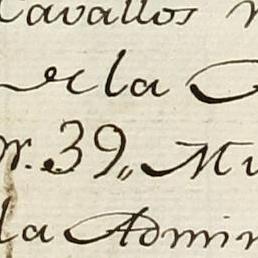 Cavallos
de la
39,, Mu
la Admin